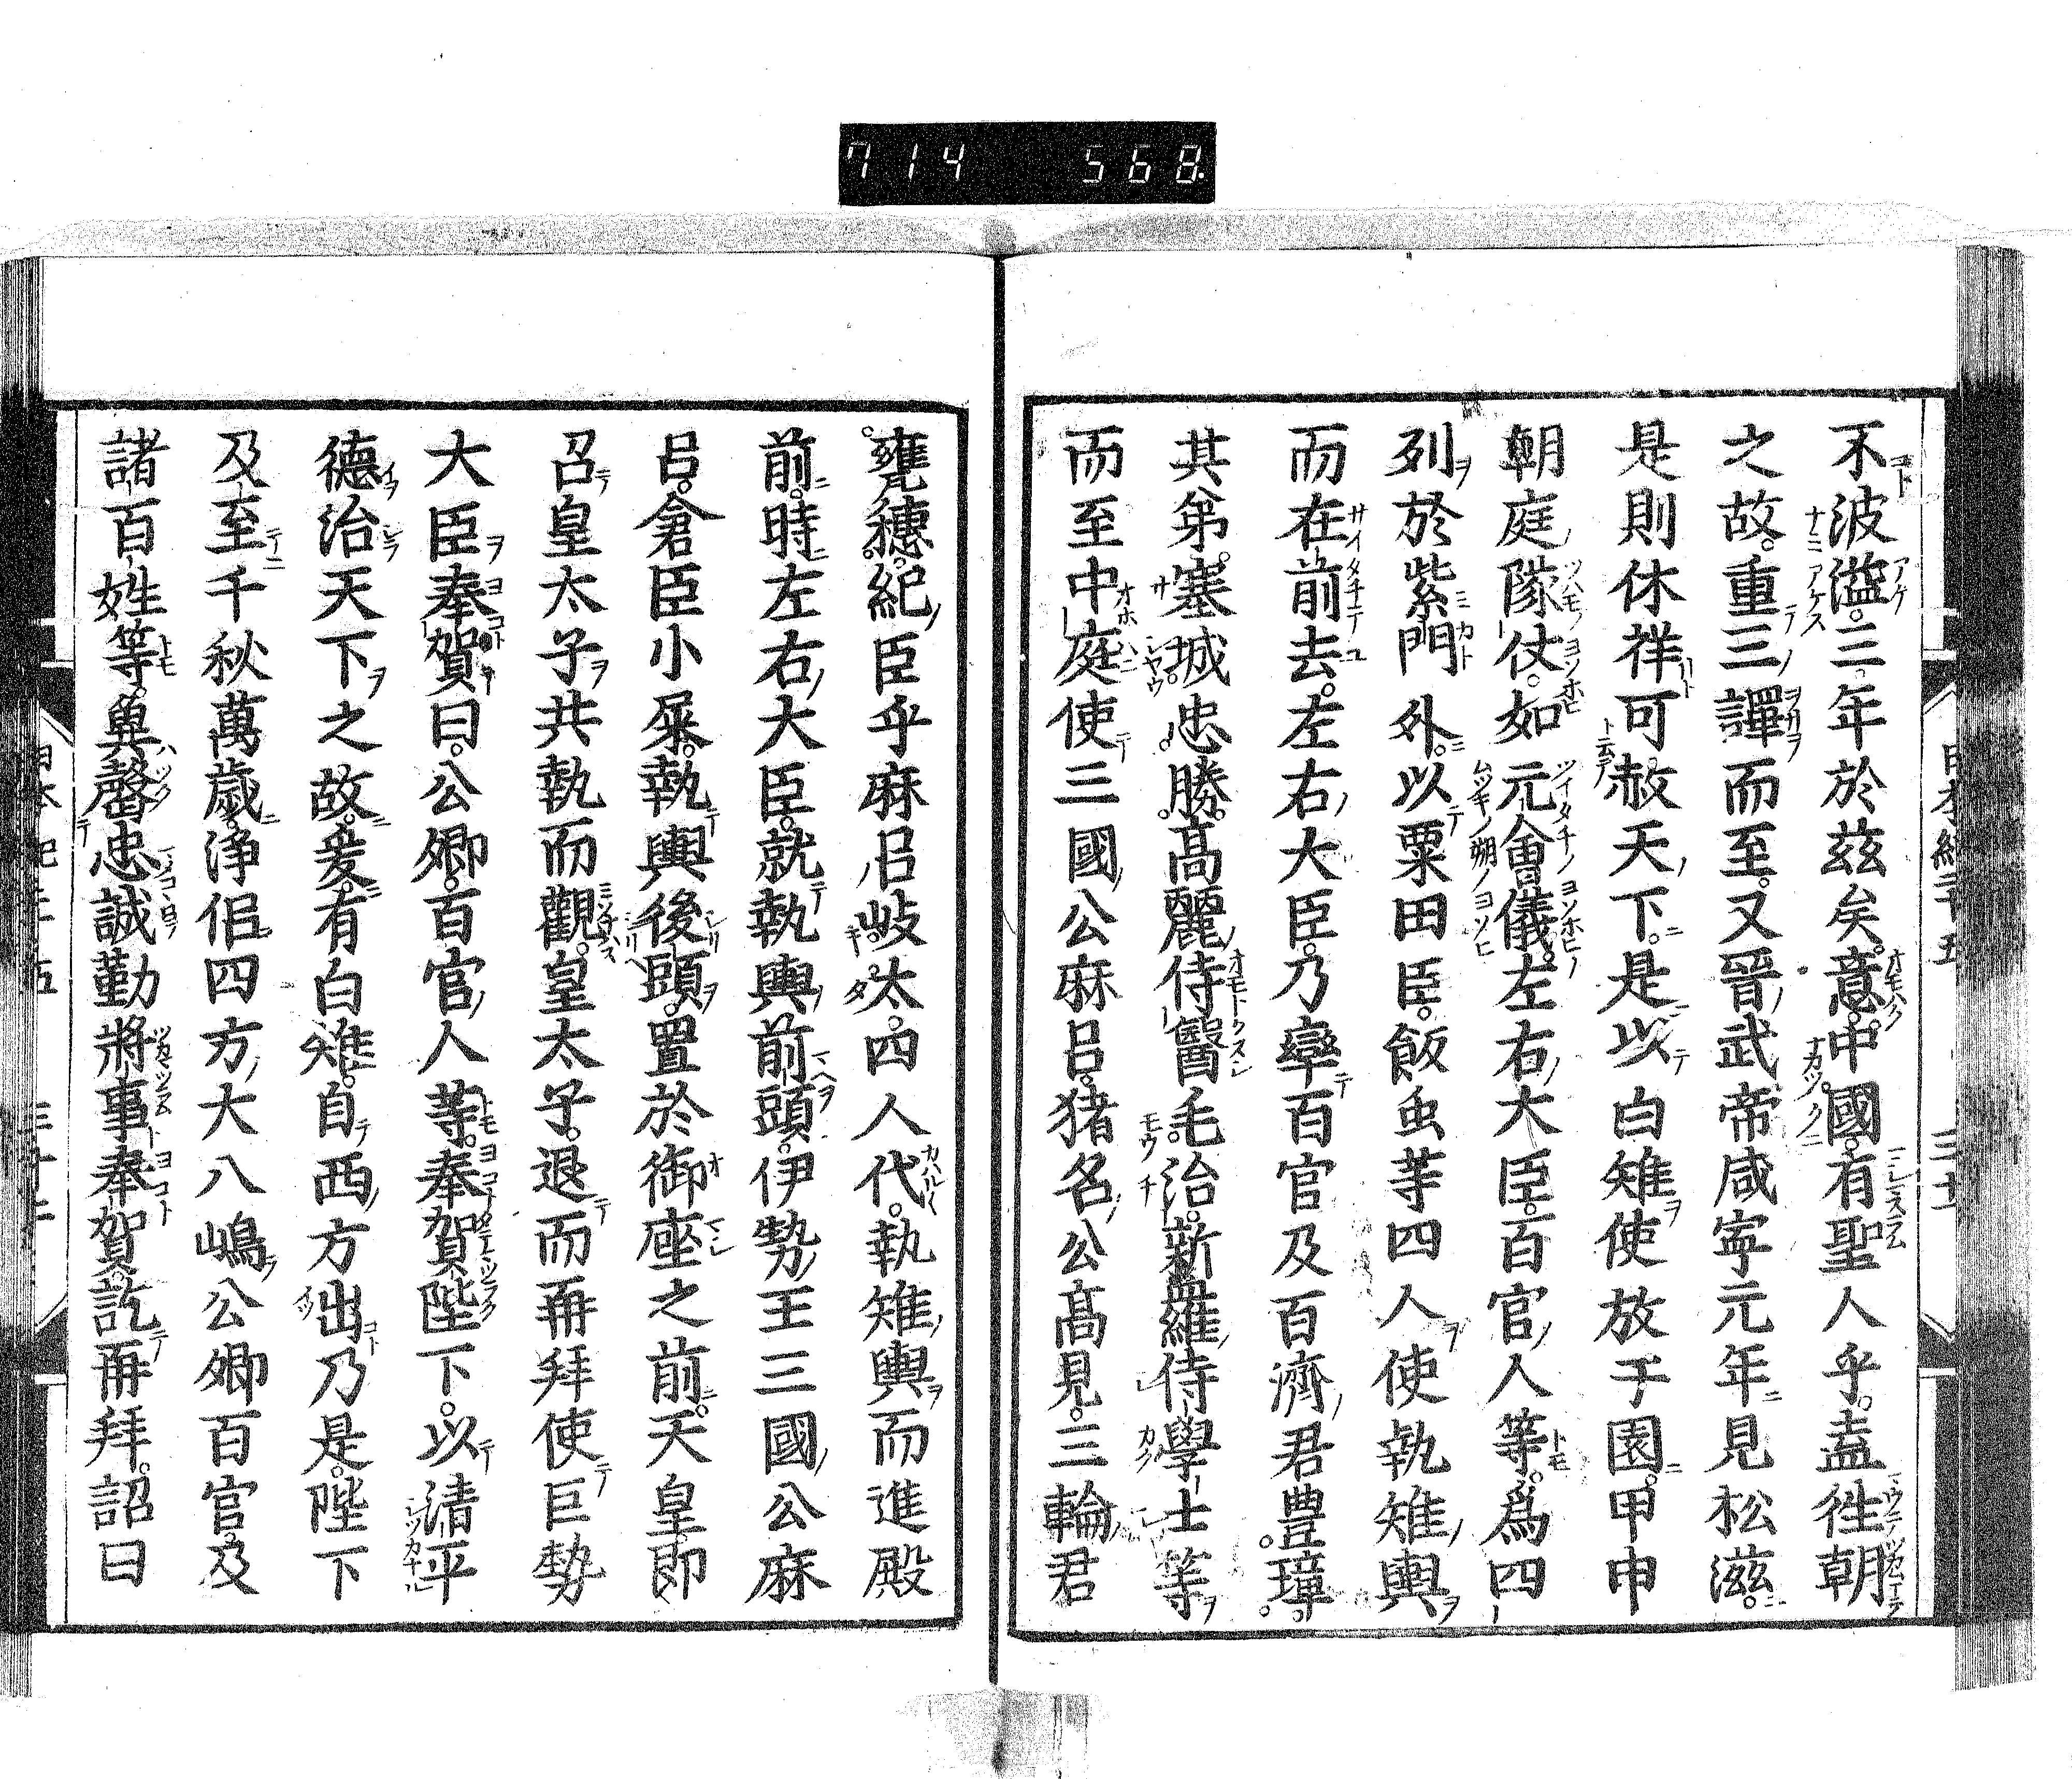 714 568.
不波溢三年於茲矣意中國有聖人乎盍徃朝
之故重三譯而至又晉武帝咸寧元年見松滋
是則休祥可赦天下是以白雉使放于園甲申
朝庭隊仗如元會儀左右大臣百官人等爲四
列於紫門外以粟田臣飯虫等四人使執雉輿
而在前去左右大臣乃率百官及百濟君豊璋
其弟塞城忠勝高麗侍醫毛治新羅侍學士等
而至中庭使三國公麻呂猪名公高見三輪君
甕穗紀臣乎麻呂岐太四人代執雉輿而進殿
前時左右大臣就執輿前頭伊勢王三國公麻
呂倉臣小屎執輿後頭置於御座之前天皇即
召皇太子共執而觀皇太子退而再拜使巨勢
大臣奉賀曰公卿百官人等奉賀陛下以清平
德治天下之故爰有白雉自西方出乃是陛下
及至千秋萬歲淨侶四方大八嶋公卿百官及
諸百姓等冀罄忠誠勤將事奉賀訖再拜詔曰